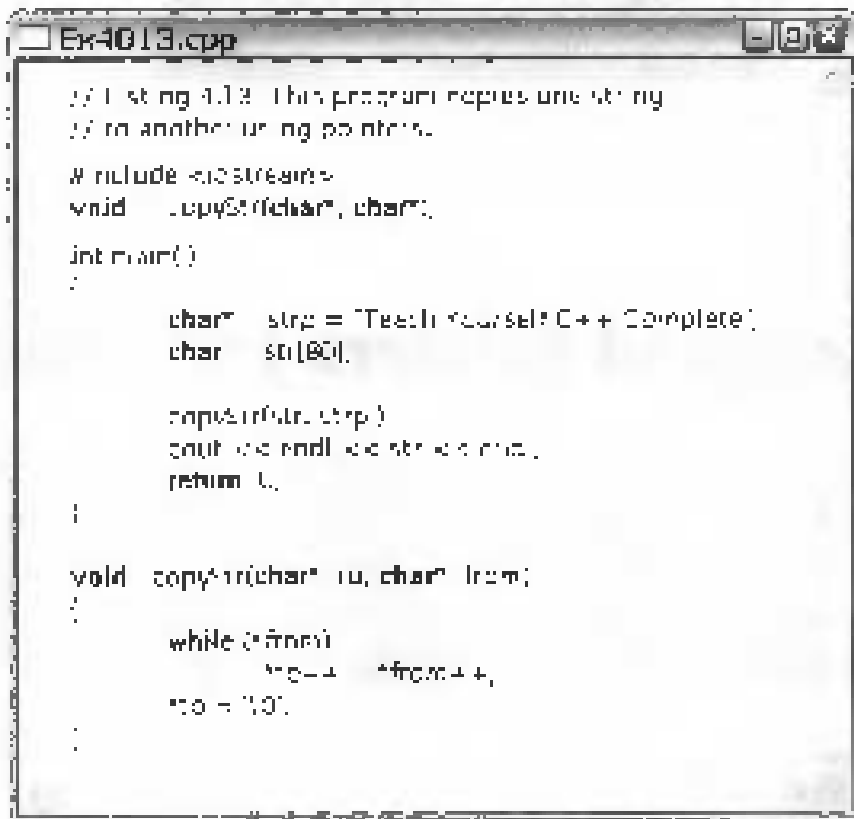 Ex4013.cpp
// Listing 4.13. This program copies one string
// to another using pointers.
#include <iostream>
void copyStr(char*, char*);
int main()
{
char* strp = "Teach Yourself C++ Complete";
char str[80];
copyStr(str, strp);
cout << endl << str << endl;
return 0;
}
void copyStr(char* to, char* from)
{
while (*from)
*to++ = *from++;
*to = '\0';
}